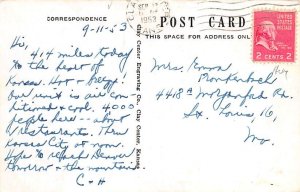 CORRESPONDENCE
POST CARD
THIS SPACE FOR ADDRESS ONLY
9-11-53
Hi,
414 miles today
to the heart of
Kansas. Hot + hazy!
our unit is air con
ditioned & cool. 4000
people here - about
4 restaurants. Thru
Kansas City at noon.
Hope to reach Denver
tomorrow & the mountains.
C + H
Clay Center Engraving Co., Clay Center, Kansas
SEP 12
1953
2 CENTS 2
Mrs. Erwin
4418a Morganford Rd.
St. Louis 16,
Mo.